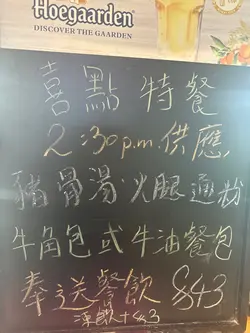 Hoegaarden
DISCOVER THE GAARDEN
喜點特餐
2:30p.m.供應
豬骨湯·火腿通粉
牛角包或牛油餐包
奉送餐飲 $43
凍飲+$3